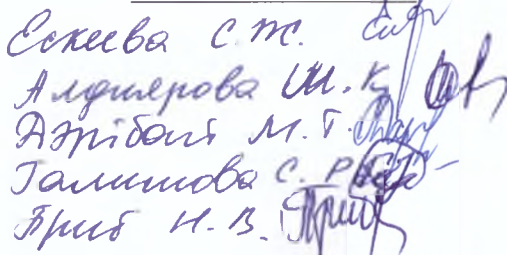 Ескеева С.Ж.
Алдиярова Ш.К
Дәрібай М.Т.
Галимова С.Р.
Приб Н.В.